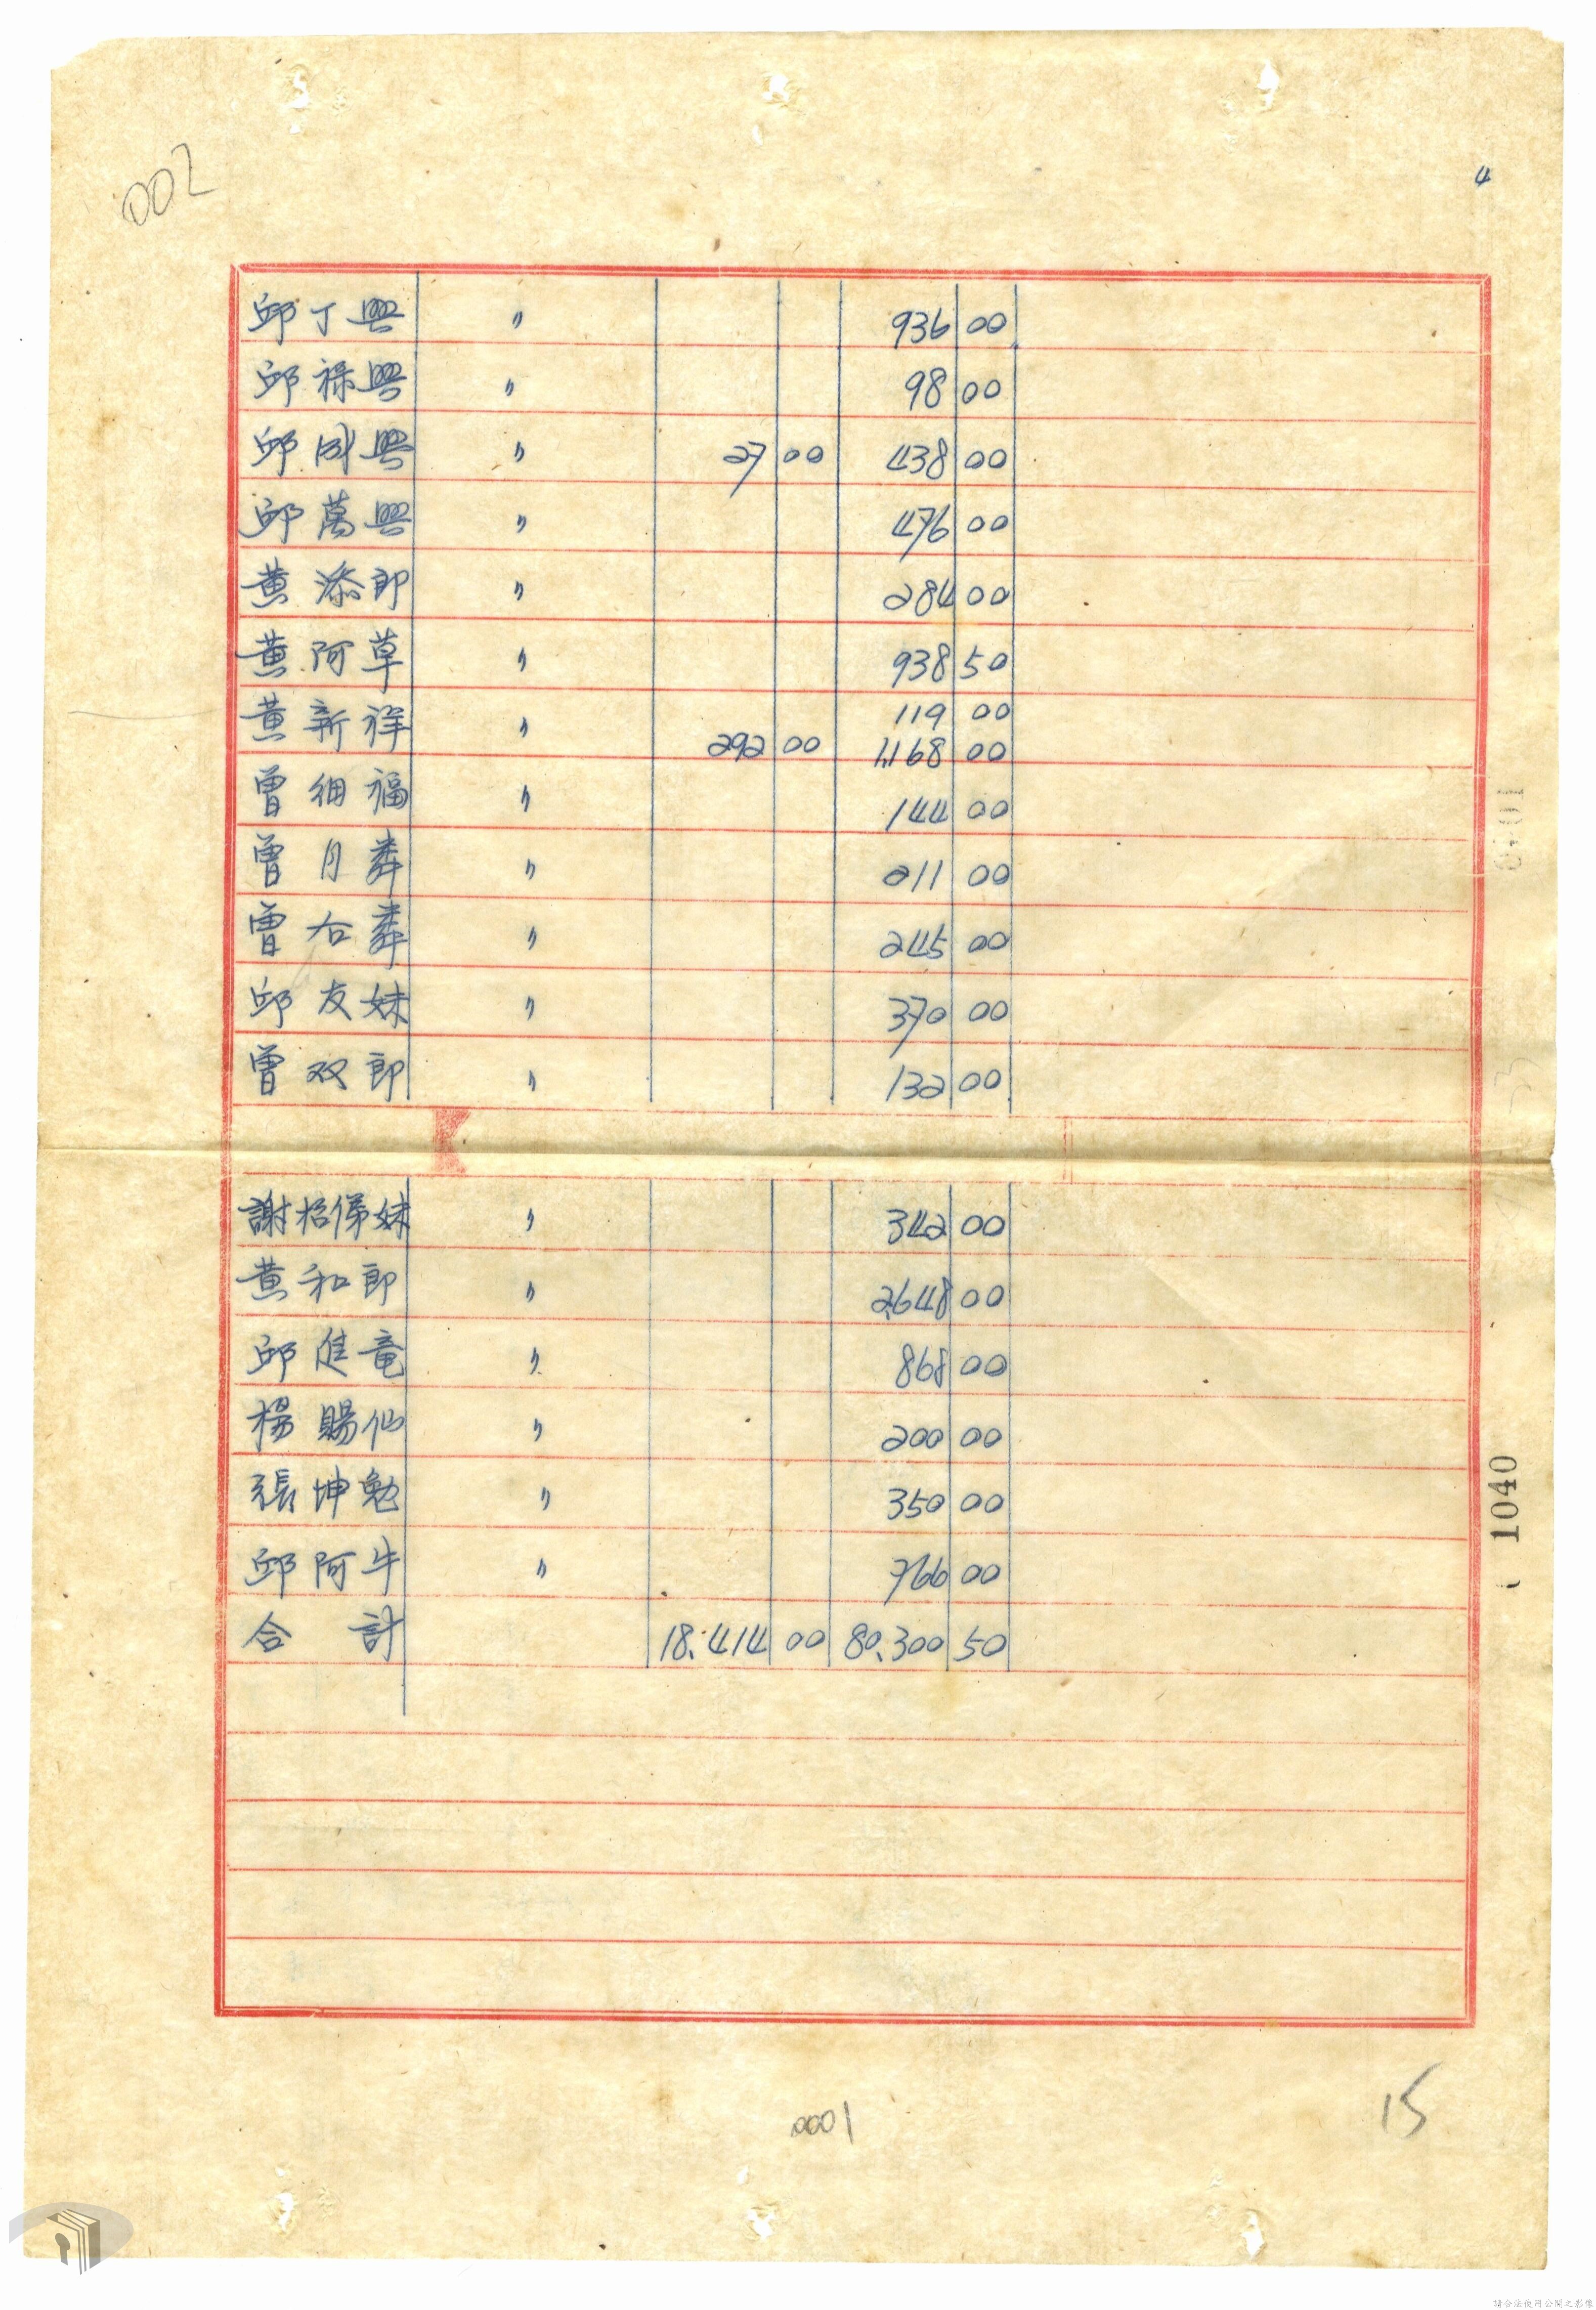 002
4
邱丁興 〃 936 00
邱祿興 〃 98 00
邱同興 〃 27 00 438 00
邱萬興 〃 476 00
黄添郎 〃 284 00
黄阿草 〃 938 50
黄新祥 〃 119 00
292 00 1,168 00
曾細福 〃 144 00
曾月粦 〃 211 00
曾右粦 〃 245 00
邱友妹 〃 370 00
曾双郎 〃 132 00
謝招俤妹 〃 342 00
黄和郎 〃 2,648 00
邱進竜 〃 868 00
楊賜仙 〃 200 00
張坤勉 〃 350 00
邱阿牛 〃 766 00
合計 18.414 00 80.300 50
1040
15
0001
請合法使用公開之影像